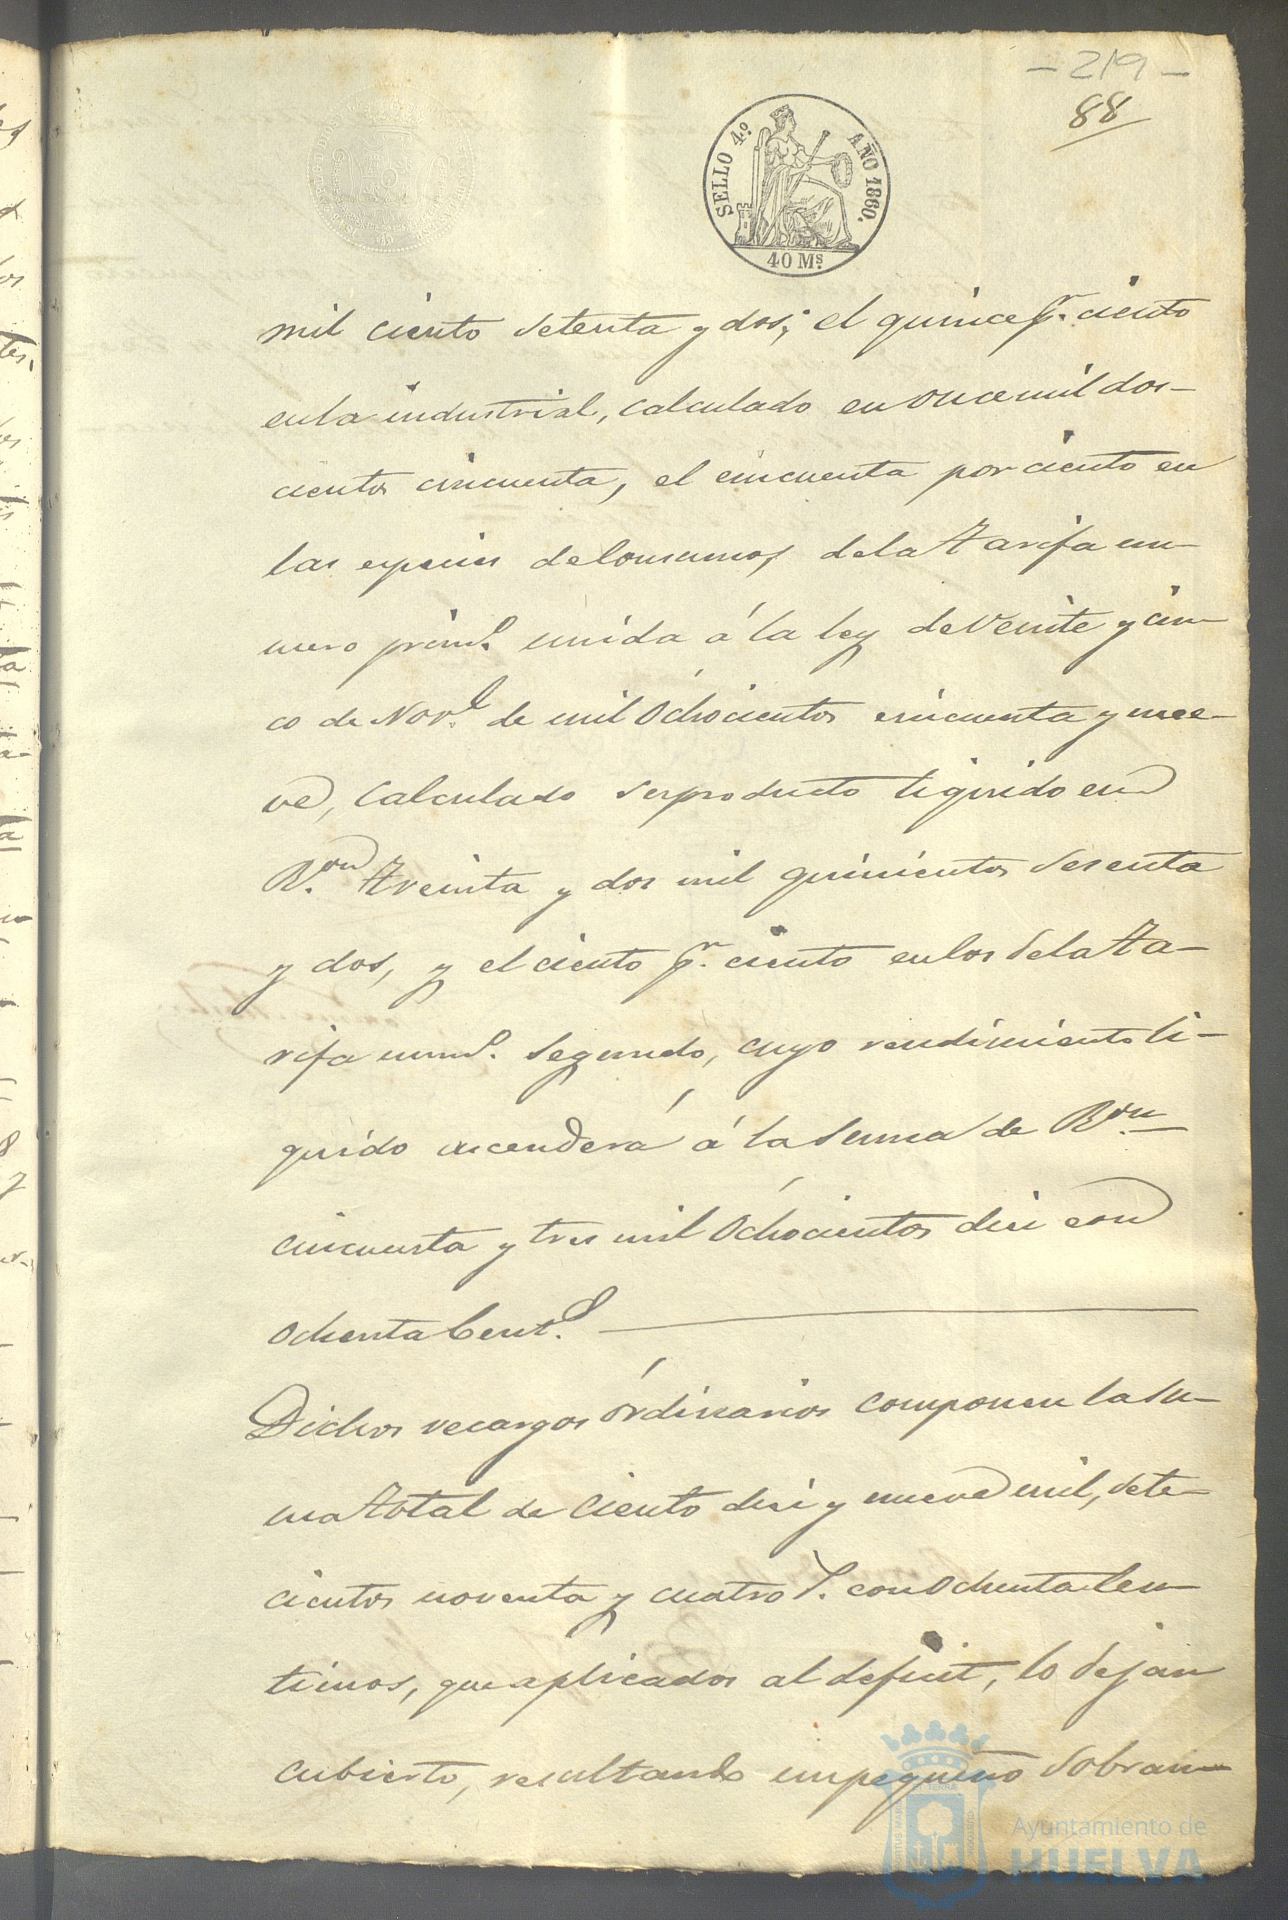 - 219 -
88
SELLO 4.º AÑO 1860.
40 Mˢ.
mil ciento setenta y dos; el quince pʳ. ciento
en la industrial, calculado en once mil dos-
cientos cincuenta, el cincuenta por ciento en
las especies de Consumos, de la tarifa nu-
mero prim.º unida á la ley de veinte y cin-
co de Nov.e de mil Ochocientos cincuenta y nue-
ve, calculado su producto liquido en
R.on treinta y dos mil quinientos sesenta
y dos, y el ciento pʳ. ciento en los de la ta-
rifa num.º segundo, cuyo rendimiento li-
quido ascenderá á la suma de R.on
cincuenta y tres mil Ochocientos diez con
ochenta Cent.s
Dichos recargos órdinarios componen la su-
ma total de ciento diez y nueve mil, sete-
cientos noventa y cuatro r.s con Ochenta Cen-
timos, que aplicados al deficit, lo dejan
cubierto, resultando un pequeño sobran-
Ayuntamiento de
HUELVA